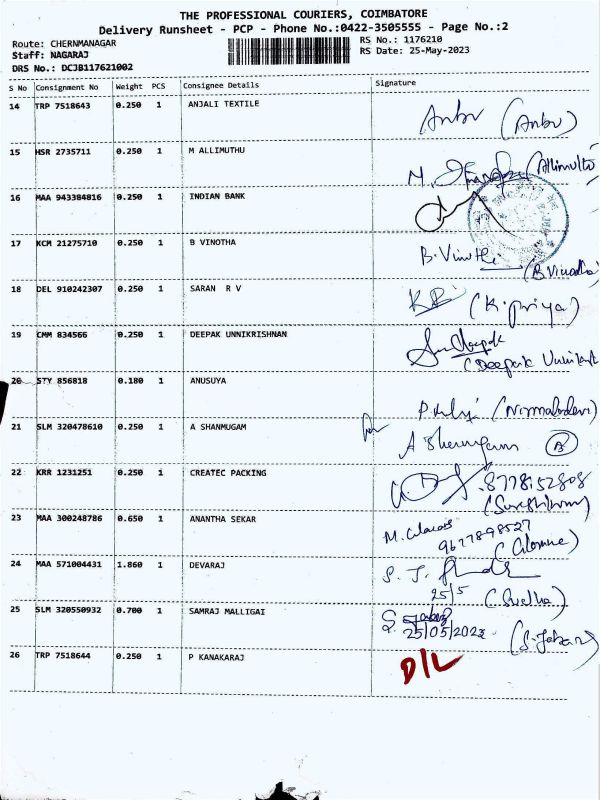 THE PROFESSIONAL COURIERS, COIMBATORE
Delivery Runsheet - PCP - Phone No.:0422-3505555 - Page No.:2
Route: CHERNMANAGAR RS No.: 1176210
Staff: NAGARAJ RS Date: 25-May-2023
DRS No.: DCJB117621002
S No Consignment No Weight PCS Consignee Details Signature
14 TRP 7518643 0.250 1 ANJALI TEXTILE
Anbu (Anbu)
15 HSR 2735711 0.250 1 M ALLIMUTHU
M. (Allimuthu)
16 MAA 943384816 0.250 1 INDIAN BANK
17 KCM 21275710 0.250 1 B VINOTHA
B. Vinotha (B Vinodha)
18 DEL 910242307 0.250 1 SARAN R V
(K. priya)
19 CMM 834566 0.250 1 DEEPAK UNNIKRISHNAN
Deepak
(Deepak
20 STY 856818 0.180 1 ANUSUYA
(Nirmaladevi)
21 SLM 320478610 0.250 1 A SHANMUGAM
for A Shanmugam
22 KRR 1231251 0.250 1 CREATEC PACKING
8778152808
23 MAA 300248786 0.650 1 ANANTHA SEKAR
9677898527
24 MAA 571004431 1.860 1 DEVARAJ
25/5
25 SLM 320550932 0.700 1 SAMRAJ MALLIGAI
25/05/2023
26 TRP 7518644 0.250 1 P KANAKARAJ
D/L